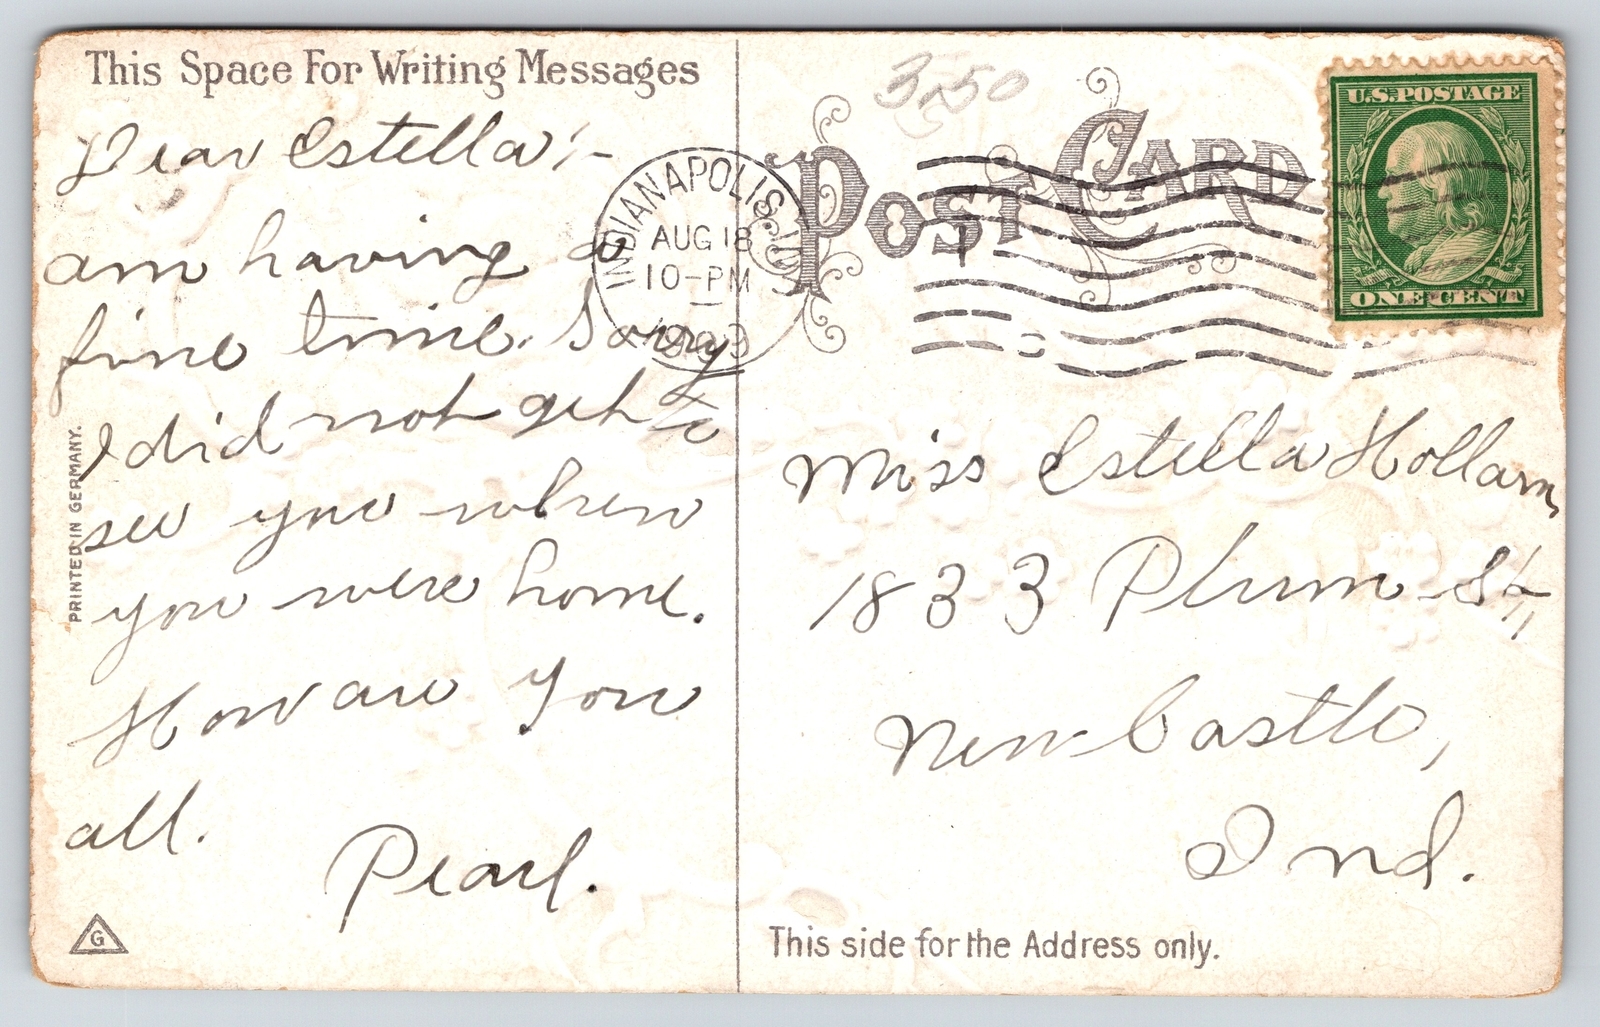 This Space For Writing Messages
Dear Estella:-
am having a
fine time. Sorry
I did not get to
see you when
you were home.
How are you
all.
Pearl.
PRINTED IN GERMANY.
G
3.50
POST CARD
INDIANAPOLIS, IND.
AUG 18
10-PM
U.S. POSTAGE
ONE CENT
Miss Estella Hollam,
1833 Plum St.,
New Castle,
Ind.
This side for the Address only.